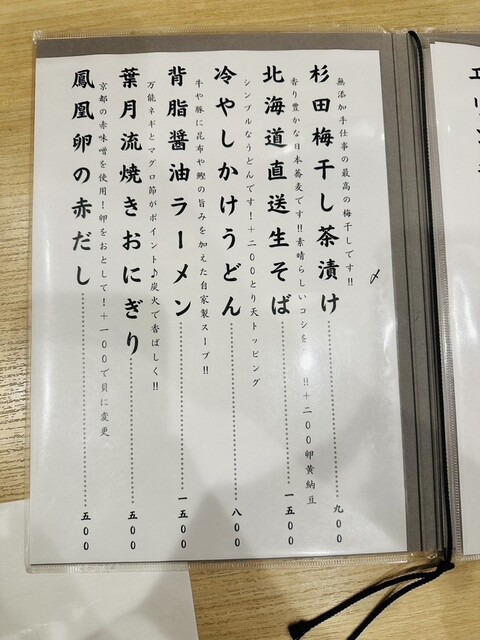 無添加手仕事の最高の梅干しです!!
杉田梅干し茶漬け
九00
香り豊かな日本蕎麦です!!素晴らしいコシを!!+二00卵黄納豆
北海道直送生そば
一500
シンプルなうどんです!+二00とり天トッピング
冷やしかけうどん
八00
牛や豚に昆布や鰹の旨みを加えた自家製スープ!!
背脂醤油ラーメン
一500
万能ネギとマグロ節がポイント♪炭火で香ばしく!!
葉月流焼きおにぎり
五00
京都の赤味噌を使用!卵をおとして!+一00で貝に変更
鳳凰卵の赤だし
五00